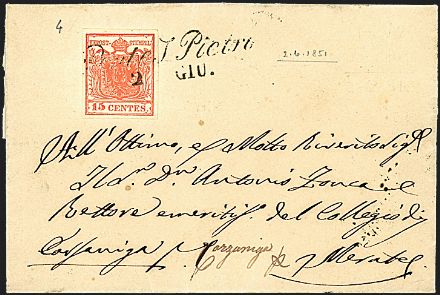 4
KKPOST-STEMPEL
15 CENTES.
Ponte S. Pietro
2
GIU.
2.6.1851
All' Ottimo, e Molto Riverito Sigr
Il Sr Dn Antonio Zonca e
Rettore emerito del Collegio di
Corzaniga p. Corzaniga p. Merate